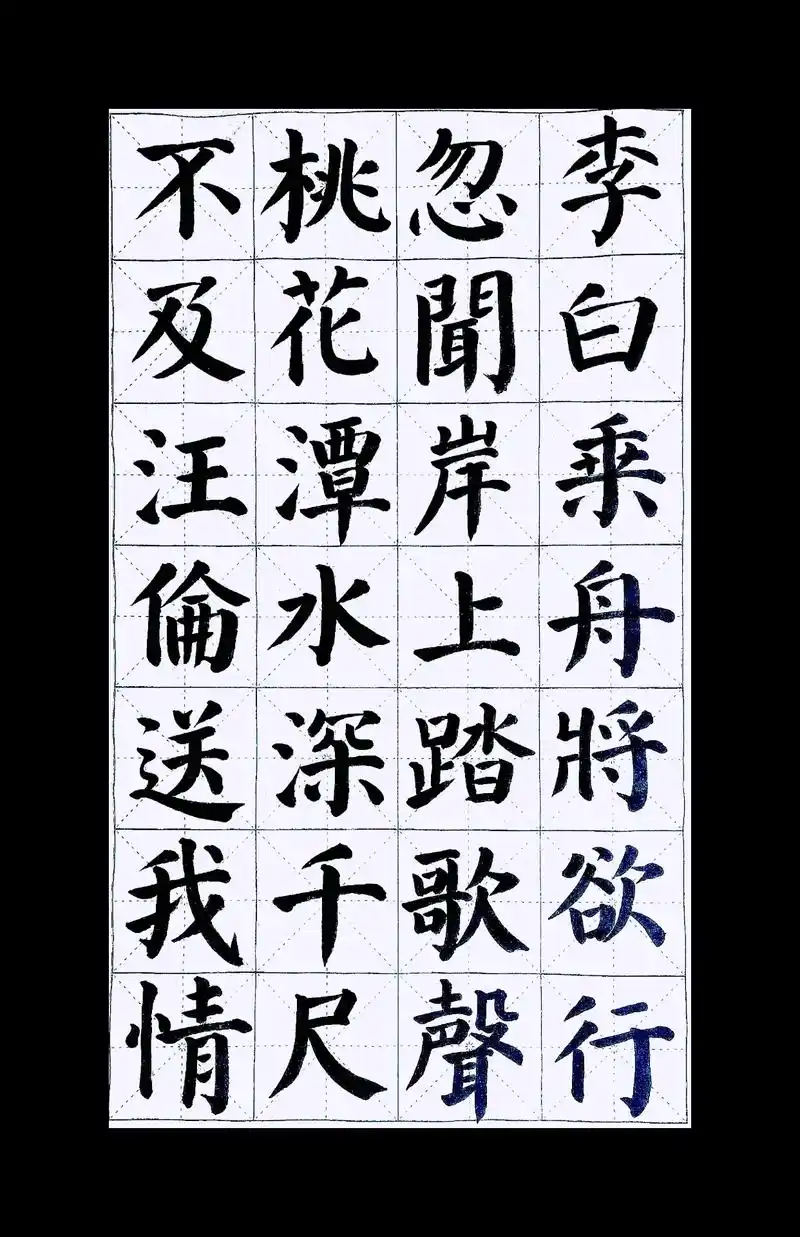 李白乘舟將欲行
忽聞岸上踏歌聲
桃花潭水深千尺
不及汪倫送我情